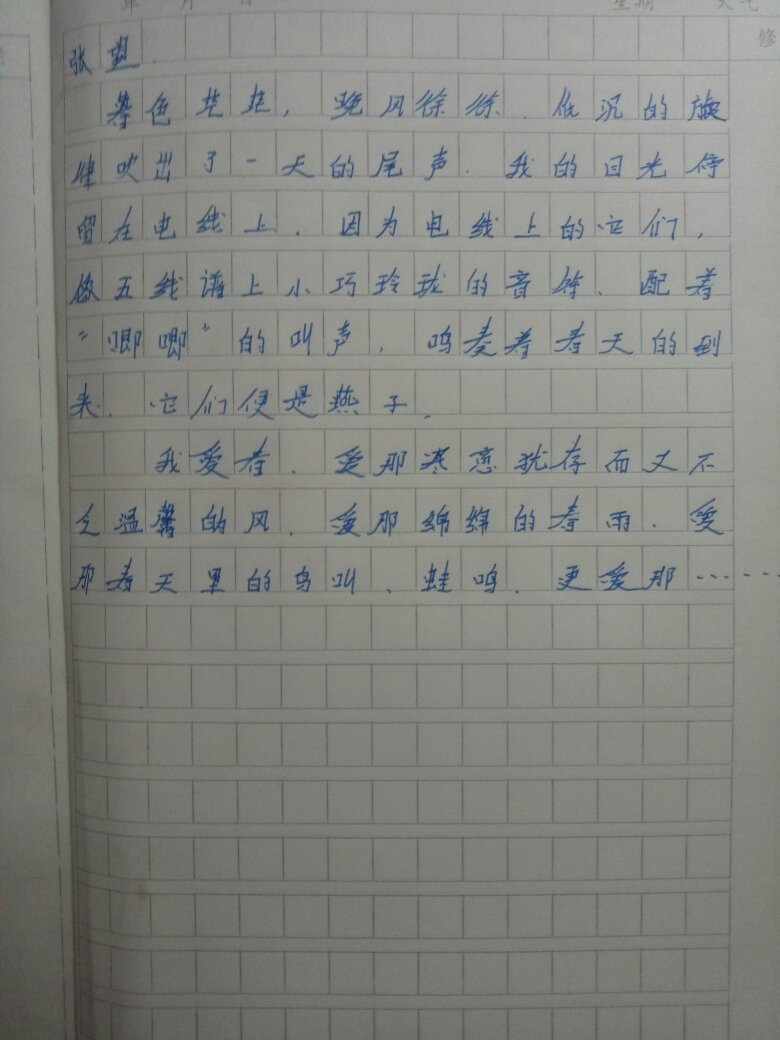 年 月 日 星期 天气
修
张盟.
暮色茫茫，晚风徐徐、低沉的旋
律吹出了一天的尾声．我的目光停
留在电线上．因为电线上的它们，
像五线谱上小巧玲珑的音符、配着
“唧唧”的叫声，鸣奏着春天的到
来．它们便是燕子，
我爱春、爱那寒意犹存而又不
乏温馨的风、爱那绵绵的春雨、爱
那春天里的鸟叫、蛙鸣、更爱那……